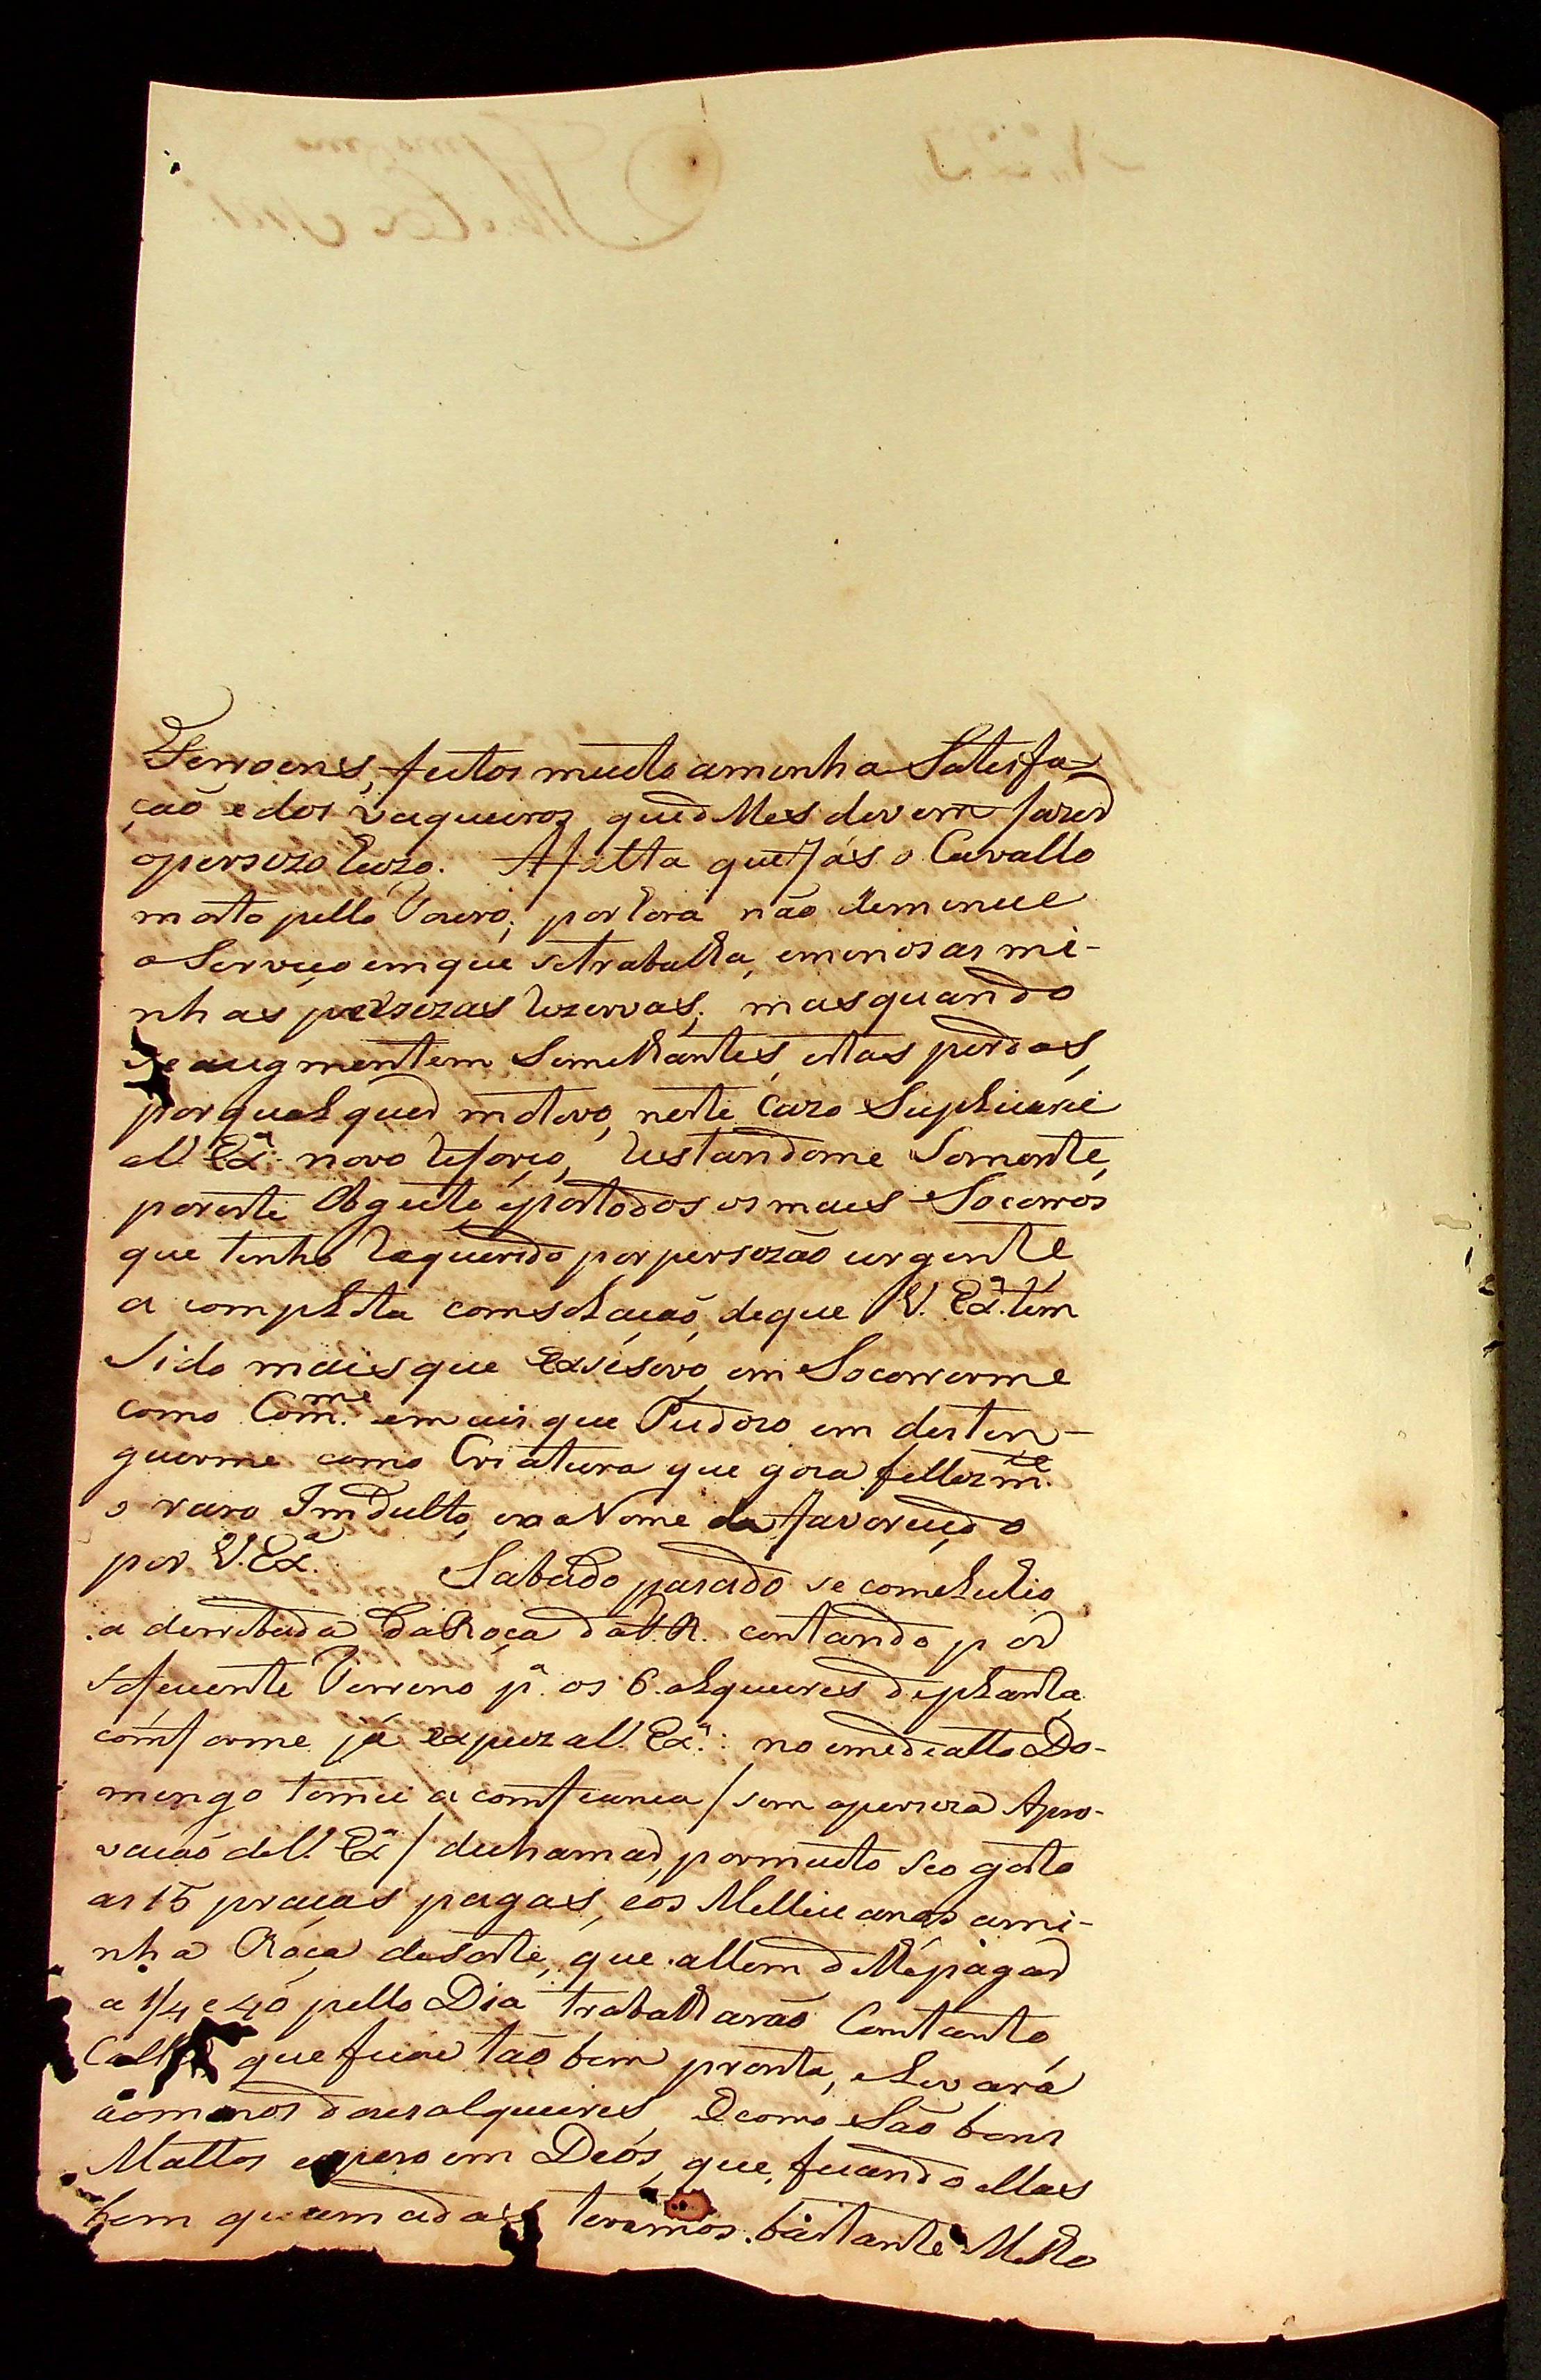 Ferroens, feitos muito aminha Satisfa-
çaõ e dos Vaqueiros que d'elles devem fazer
o percizo Uzo. Afalta que fás o Cavallo
morto pello Touro; por hora não diminue
o Serviço em que se trabalha, e menos as mi-
nhas percizas rezervas; mas quando
se augmentem Semelhantes, estas perdas,
por qualquer motivo, neste Cazo Suplicarei
a V. Exª: novo refórço, restandome Somente,
por este Objeito, e por todos os mais Socorros
que tenho requerido por percizão urgente
a completa comsolaçaõ, de que V. Exª. tem
Sido mais que Excésivo em Socorrerme
como Comme. e mais que Piedozo em distin-
guirme como Criatura que goza fellizmte.
o raro Imdulto, e o Nome de favorecido
por V. Exª. Sabádo pasado se comcluhio
a derribada da Roça da F. R. contando por
soficiente Terreno pª. os 6. alqueires de planta
comforme já expuz a V. Exª: no emediatto Do-
mingo tomei a comfiança / sem a perciza Apro-
vaçaõ de V. Exª / de chamar, por muito seo gosto
as 15 praças pagas, e os Mellicianos a mi-
nha Roça desorte, que allem de lhe pagar
a 1/4 e 40 pello Dia trabalharão Com tanto
Callor que ficou tão bem pronta, e levará
ao menos dous alqueires, E como São bons
Mattos espero em Deós, que, ficando ellas
bem queimadas teremos bastante Milho